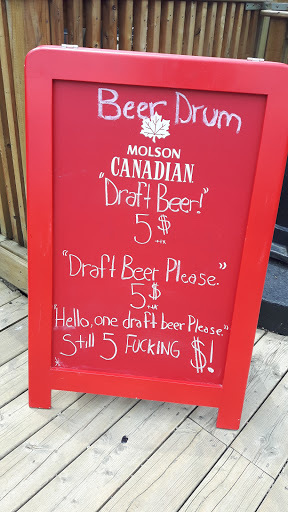 Beer Drum
MOLSON
CANADIAN
"Draft Beer!"
5 $
+tx
"Draft Beer Please."
5 $
+tx
"Hello, one draft beer Please."
Still 5 FUCKING $!